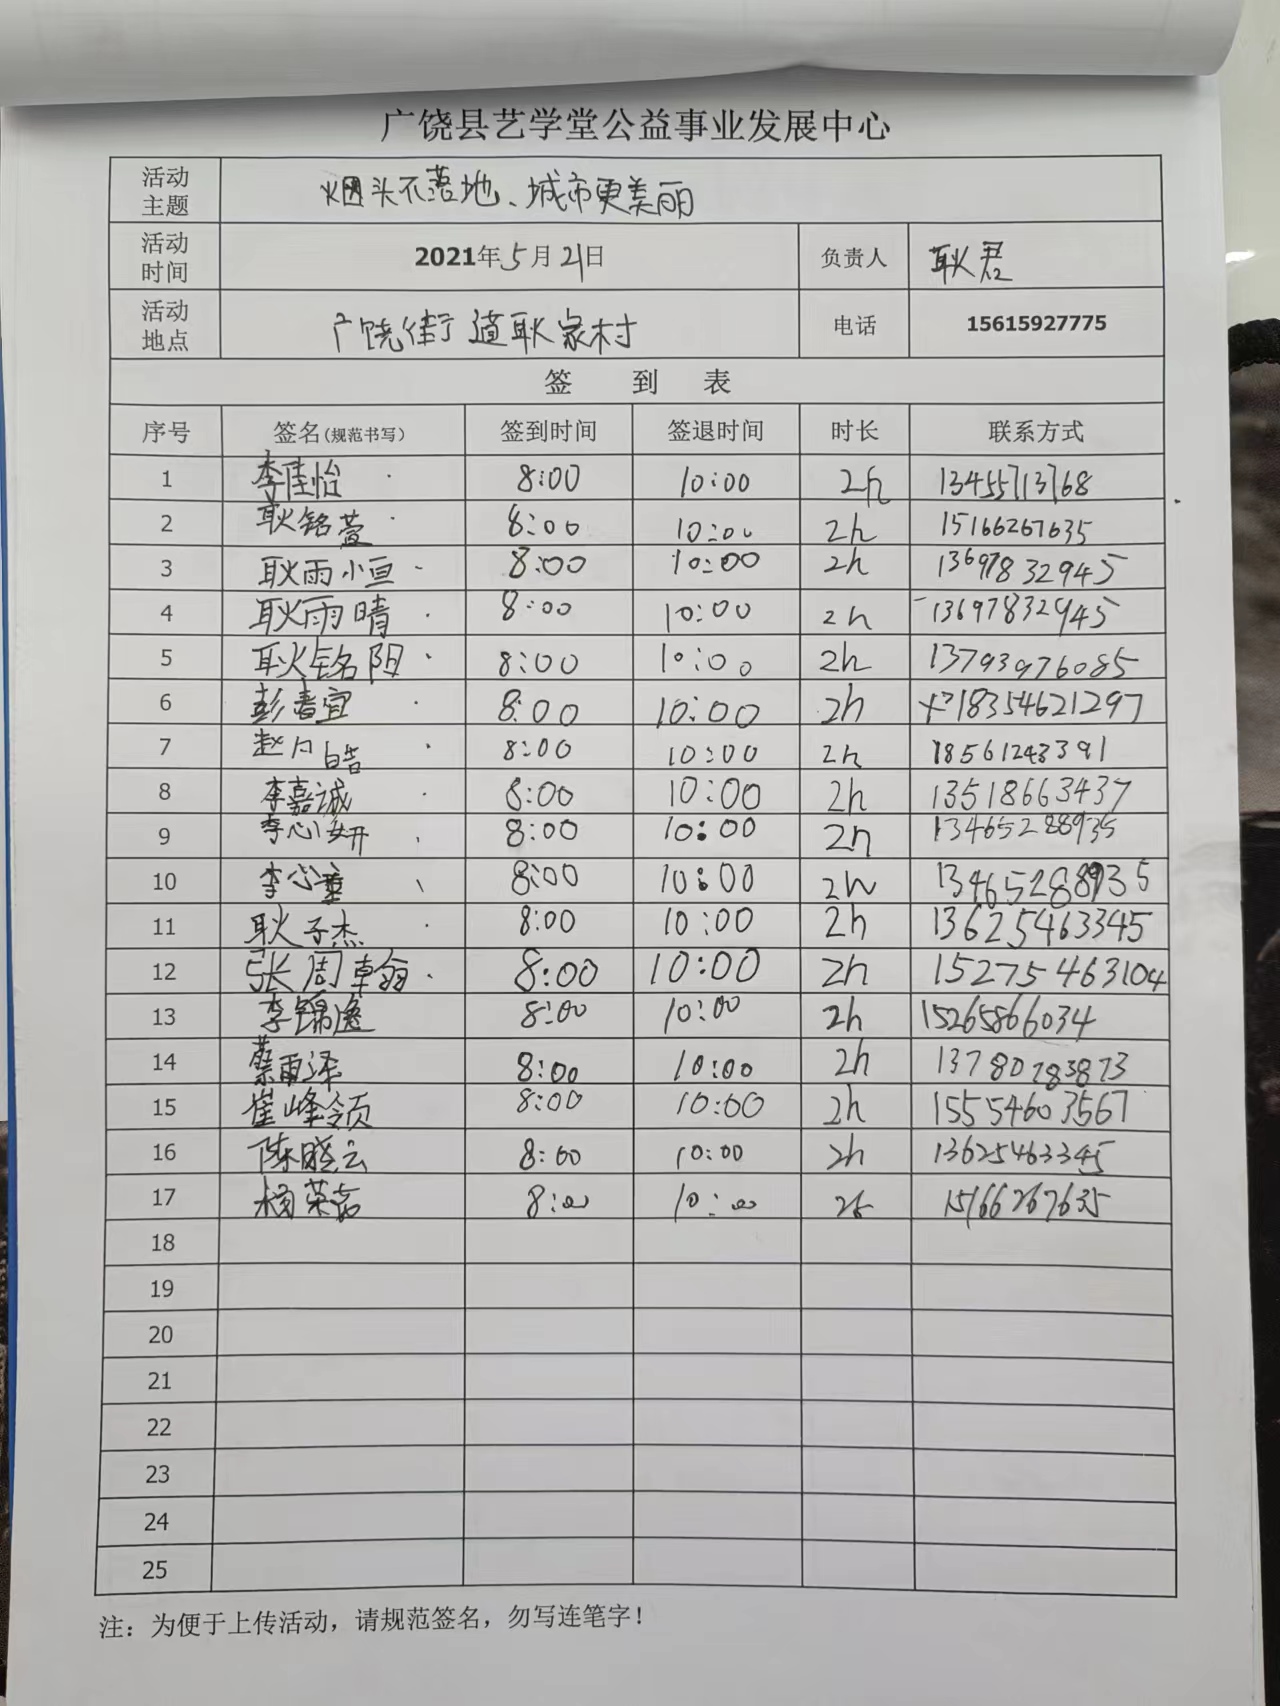 广饶县艺学堂公益事业发展中心
活动主题 烟头不落地、城市更美丽
活动时间 2021年5月21日 负责人 耿君
活动地点 广饶街道耿家村 电话 15615927775
签 到 表
序号 签名(规范书写) 签到时间 签退时间 时长 联系方式
1 李佳怡 8:00 10:00 2h 13455713768
2 耿铭萱 8:00 10:00 2h 15166267635
3 耿雨小亘 8:00 10:00 2h 13697832945
4 耿雨晴 8:00 10:00 2h 13697832945
5 耿铭阳 8:00 10:00 2h 13793976085
6 彭春宜 8:00 10:00 2h 18354621297
7 赵 皓 8:00 10:00 2h 18561243391
8 李嘉诚 8:00 10:00 2h 13518663437
9 李心妍 8:00 10:00 2h 13465288935
10 李心 8:00 10:00 2h 13465288935
11 耿子杰 8:00 10:00 2h 13625463345
12 张周翰 8:00 10:00 2h 152754463104
13 李锦逸 8:00 10:00 2h 15265866034
14 蔡雨泽 8:00 10:00 2h 13780783873
15 崔峰领 8:00 10:00 2h 15554603567
16 陈晓云 8:00 10:00 2h 13625463345
17 杨荣 8:00 10:00 2h 15166267635
18
19
20
21
22
23
24
25
注：为便于上传活动，请规范签名，勿写连笔字！